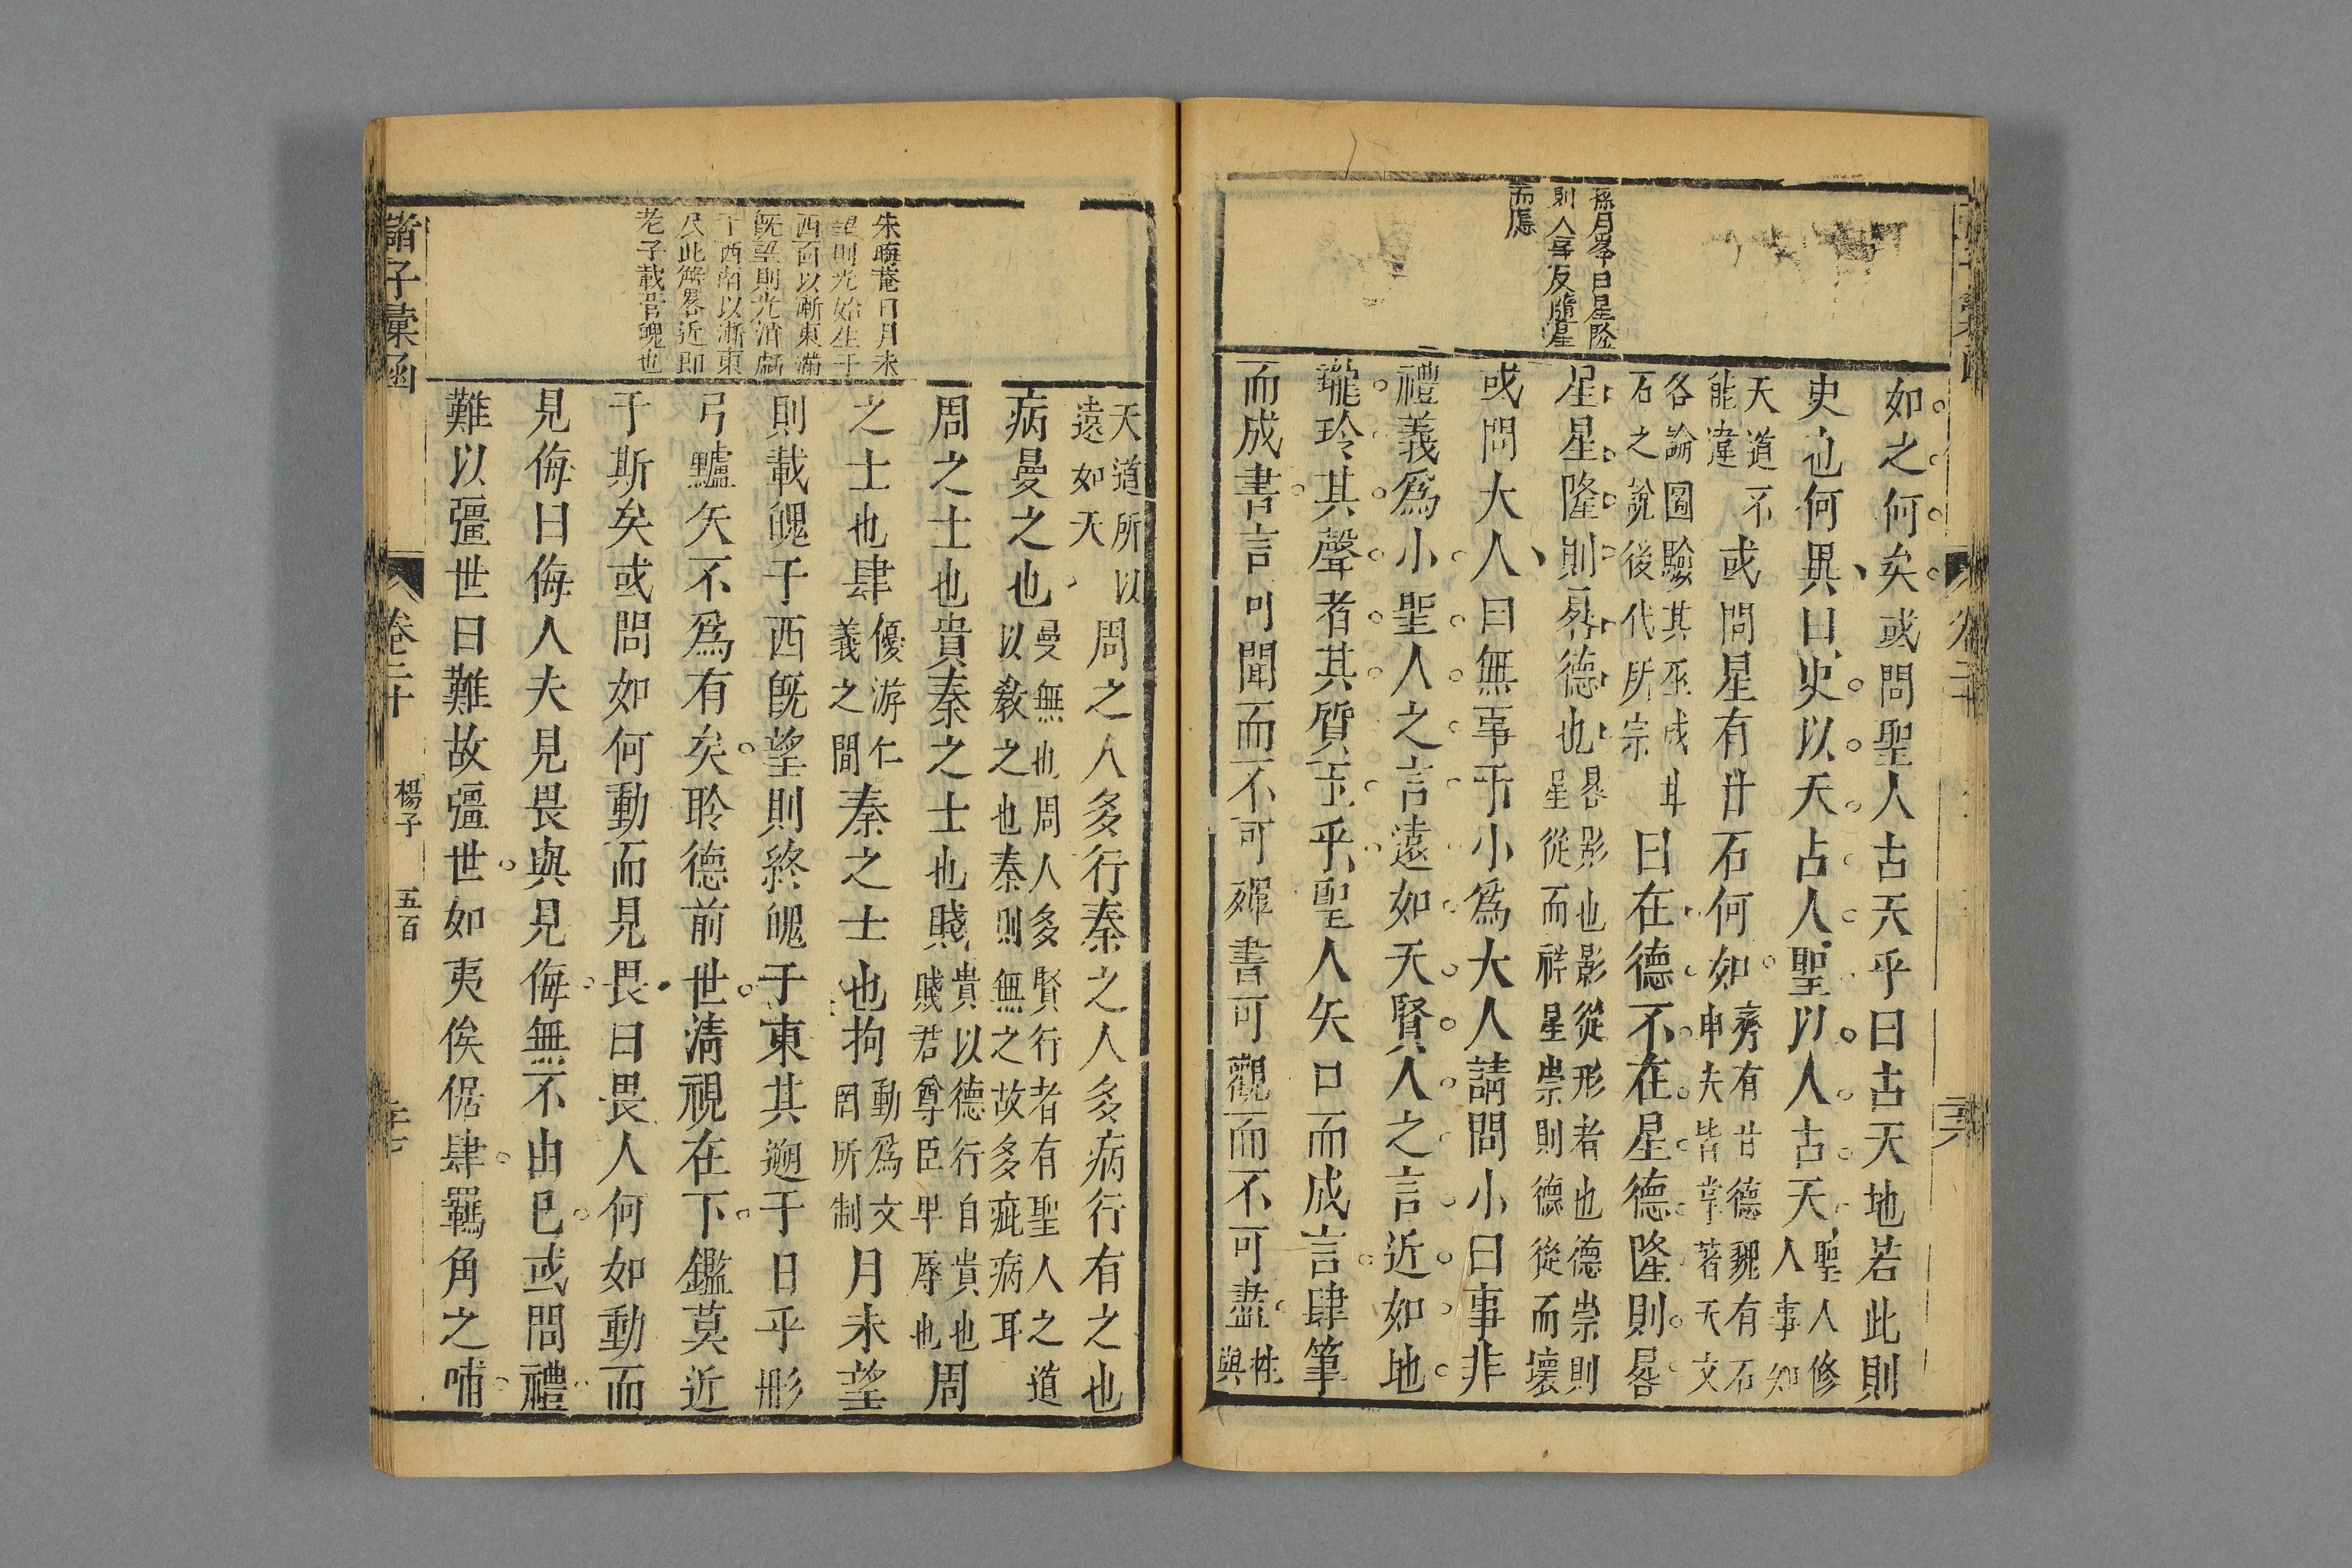 孫月峯曰星隆
則人事反隨星
而應
如之何矣或問聖人古天乎曰古天地若此則
史也何異曰史以天占人聖以人古天聖人修人事知
天道不能違或問星有甘石何如齊有甘德魏有石申夫皆掌著天文
各論圖驗其巫咸甘石之說後代所宗曰在德不在星德隆則晷
星星隆則晷德也晷影也影從形者也德崇則星從而祥星崇則德從而壞
或問大人曰無事乎小爲大人請問小曰事非
禮義爲小聖人之言遠如天賢人之言近如地
瓏玲其聲者其質玉乎聖人矢口而成言肆筆
而成書言可聞而不可殫書可觀而不可盡性與
朱晦菴曰月未
望則光始生于
西面以漸東滿
旣望則光消虧
于西面以漸東
尽此解畧近即
老子載營魄也
天道所以遠如天周之人多行秦之人多病行有之也
病曼之也曼無也周人多賢行者有聖人之道以敎之也秦則無之故多疵病耳
周之士也貴秦之士也賤貴以德行自貴也賤君尊臣卑辱也周
之士也肆優游仁義之間秦之士也拘動爲文罔所制月未望
則載魄于西旣望則終魄于東其遡于日乎彤
弓黸矢不爲有矣聆德前世清視在下鑑莫近
于斯矣或問如何動而見畏曰畏人何如動而
見侮曰侮人夫見畏與見侮無不由已或問禮
難以彊世曰難故彊世如夷俟倨肆羈角之哺
諸子彙函
卷二十
楊子 五百